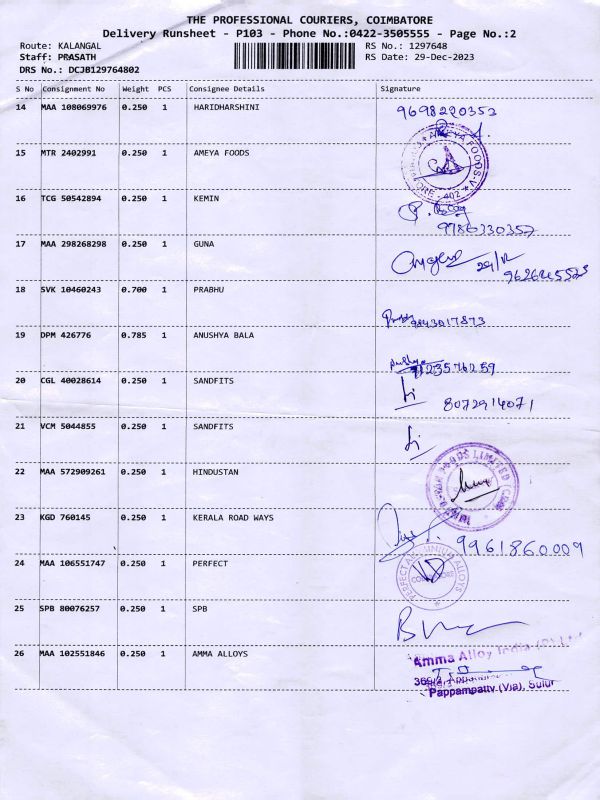 THE PROFESSIONAL COURIERS, COIMBATORE
Delivery Runsheet - P103 - Phone No.:0422-3505555 - Page No.:2
Route: KALANGAL
RS No.: 1297648
Staff: PRASATH
RS Date: 29-Dec-2023
DRS No.: DCJB129764802
S No Consignment No Weight PCS Consignee Details Signature
14 MAA 108069976 0.250 1 HARIDHARSHINI 9698220352
15 MTR 2402991 0.250 1 AMEYA FOODS
AMEYA FOODS
16 TCG 50542894 0.250 1 KEMIN
9986330357
17 MAA 298268298 0.250 1 GUNA
29/12
18 SVK 10460243 0.700 1 PRABHU
9843017873
19 DPM 426776 0.785 1 ANUSHYA BALA
20 CGL 40028614 0.250 1 SANDFITS
8072914071
21 VCM 5044855 0.250 1 SANDFITS
22 MAA 572909261 0.250 1 HINDUSTAN
LIMITED
23 KGD 760145 0.250 1 KERALA ROAD WAYS
9961860009
24 MAA 106551747 0.250 1 PERFECT
PERFECT ALUMINIUM ALLOYS
25 SPB 80076257 0.250 1 SPB
26 MAA 102551846 0.250 1 AMMA ALLOYS
Amma Alloy India (P) Ltd
Pappampatty (Via), Sulur